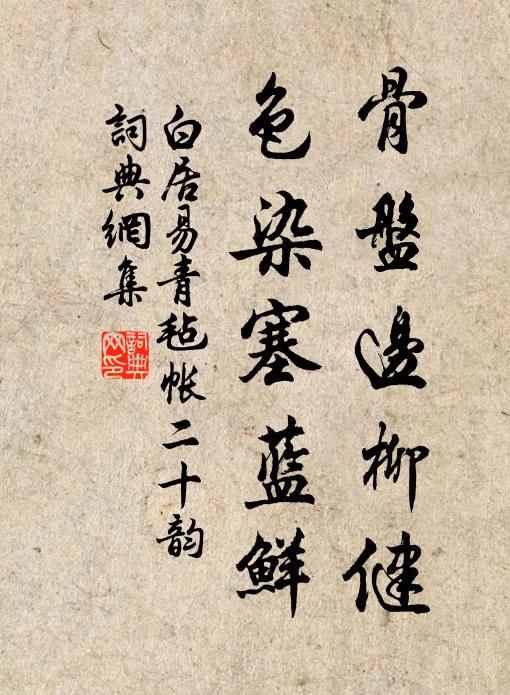 骨盤邊柳健
色染塞藍鮮
白居易青毡帐二十韵
詞典網集
詞典
网印